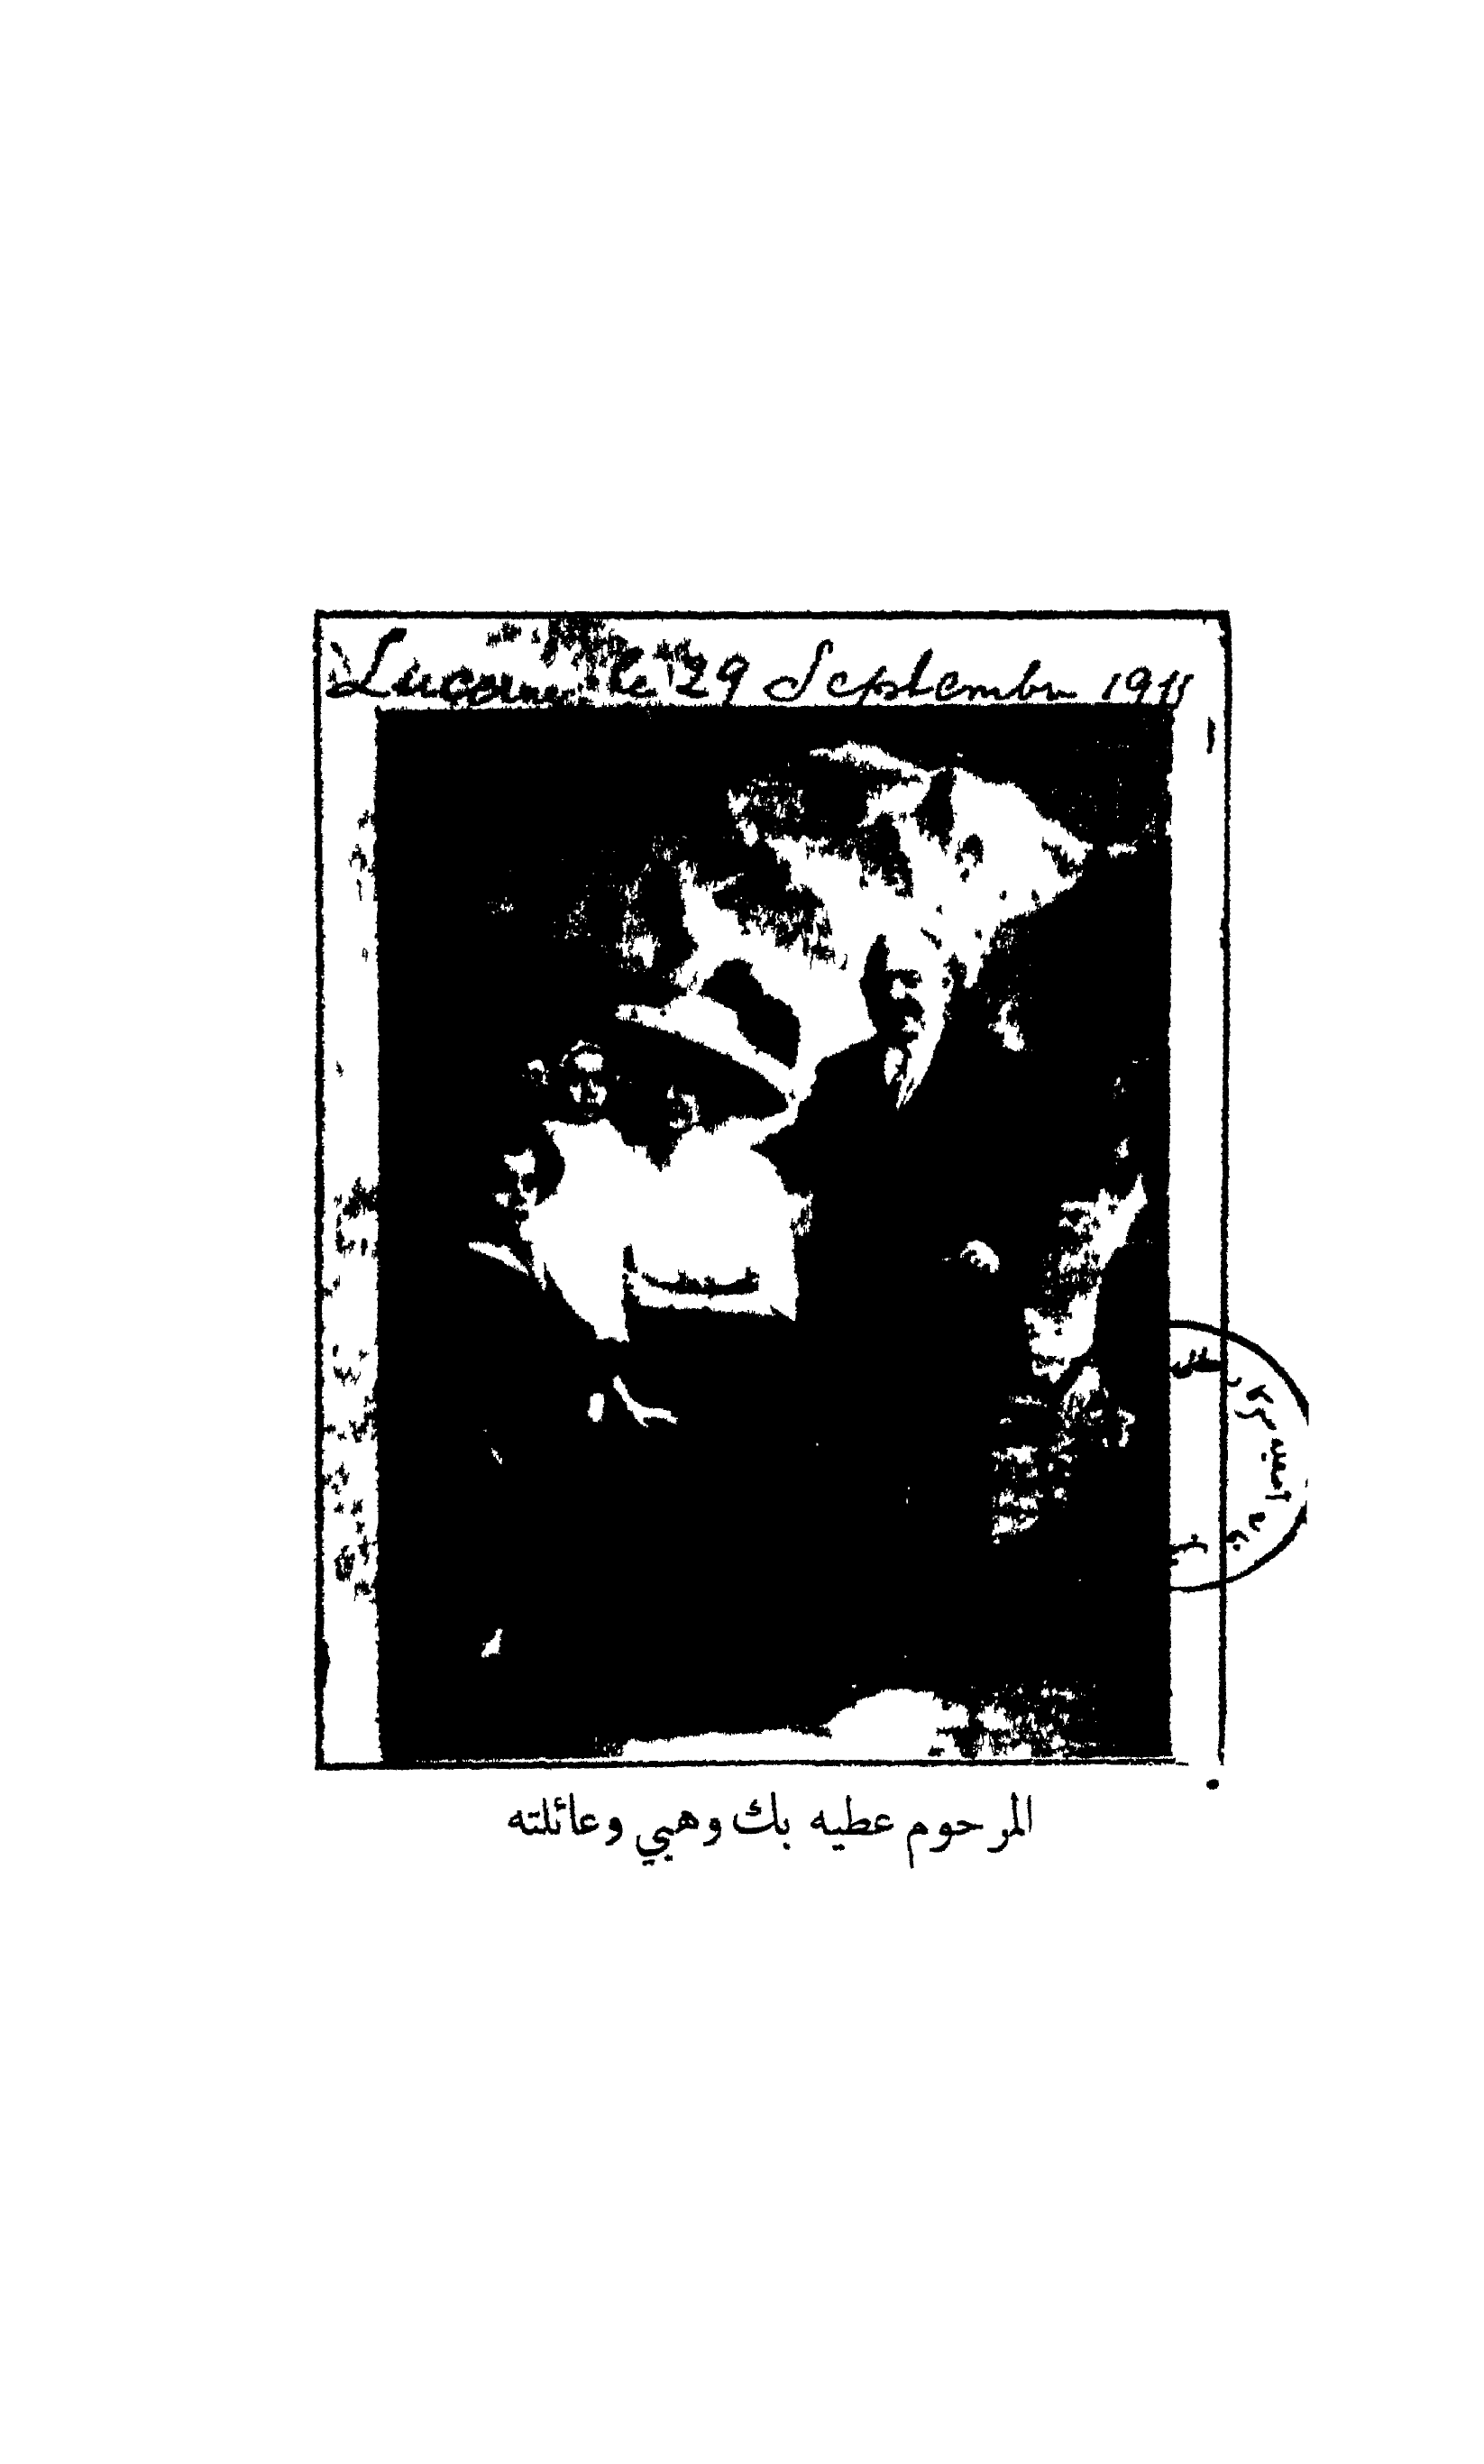 Lucerne le 29 Septembre 1911
المرحوم عطيه بك وهبي وعائلته